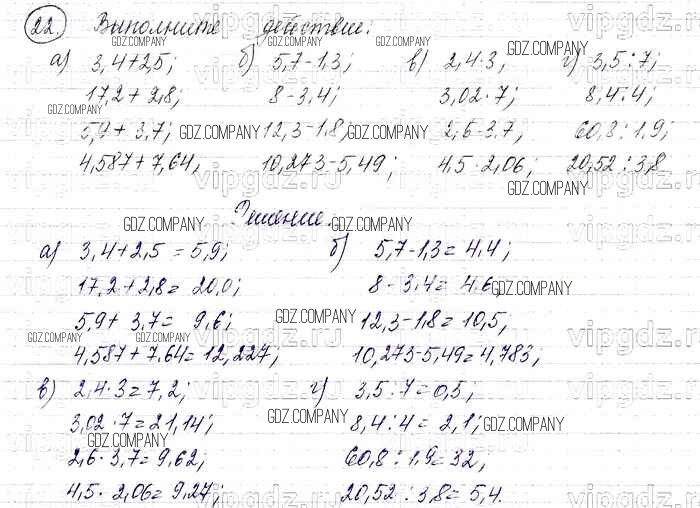 22. Выполните действие:
а) 3,4+2,5; б) 5,7-1,3; в) 2,4·3, г) 3,5:7;
17,2+2,8; 8-3,4; 3,02·7; 8,4:4;
5,9+3,7; 12,3-1,8; 2,6·3,7; 60,8:1,9;
4,587+7,64, 10,273-5,49; 4,5·2,06; 20,52:3,8
Решение.
а) 3,4+2,5=5,9; б) 5,7-1,3=4,4;
17,2+2,8=20,0; 8-3,4=4,6,
5,9+3,7=9,6; 12,3-1,8=10,5,
4,587+7,64=12,227; 10,273-5,49=4,783;
в) 2,4·3=7,2; г) 3,5:7=0,5;
3,02·7=21,14; 8,4:4=2,1;
2,6·3,7=9,62; 60,8:1,9=32,
4,5·2,06=9,27; 20,52:3,8=5,4.
GDZ.COMPANY
vipgdz.ru